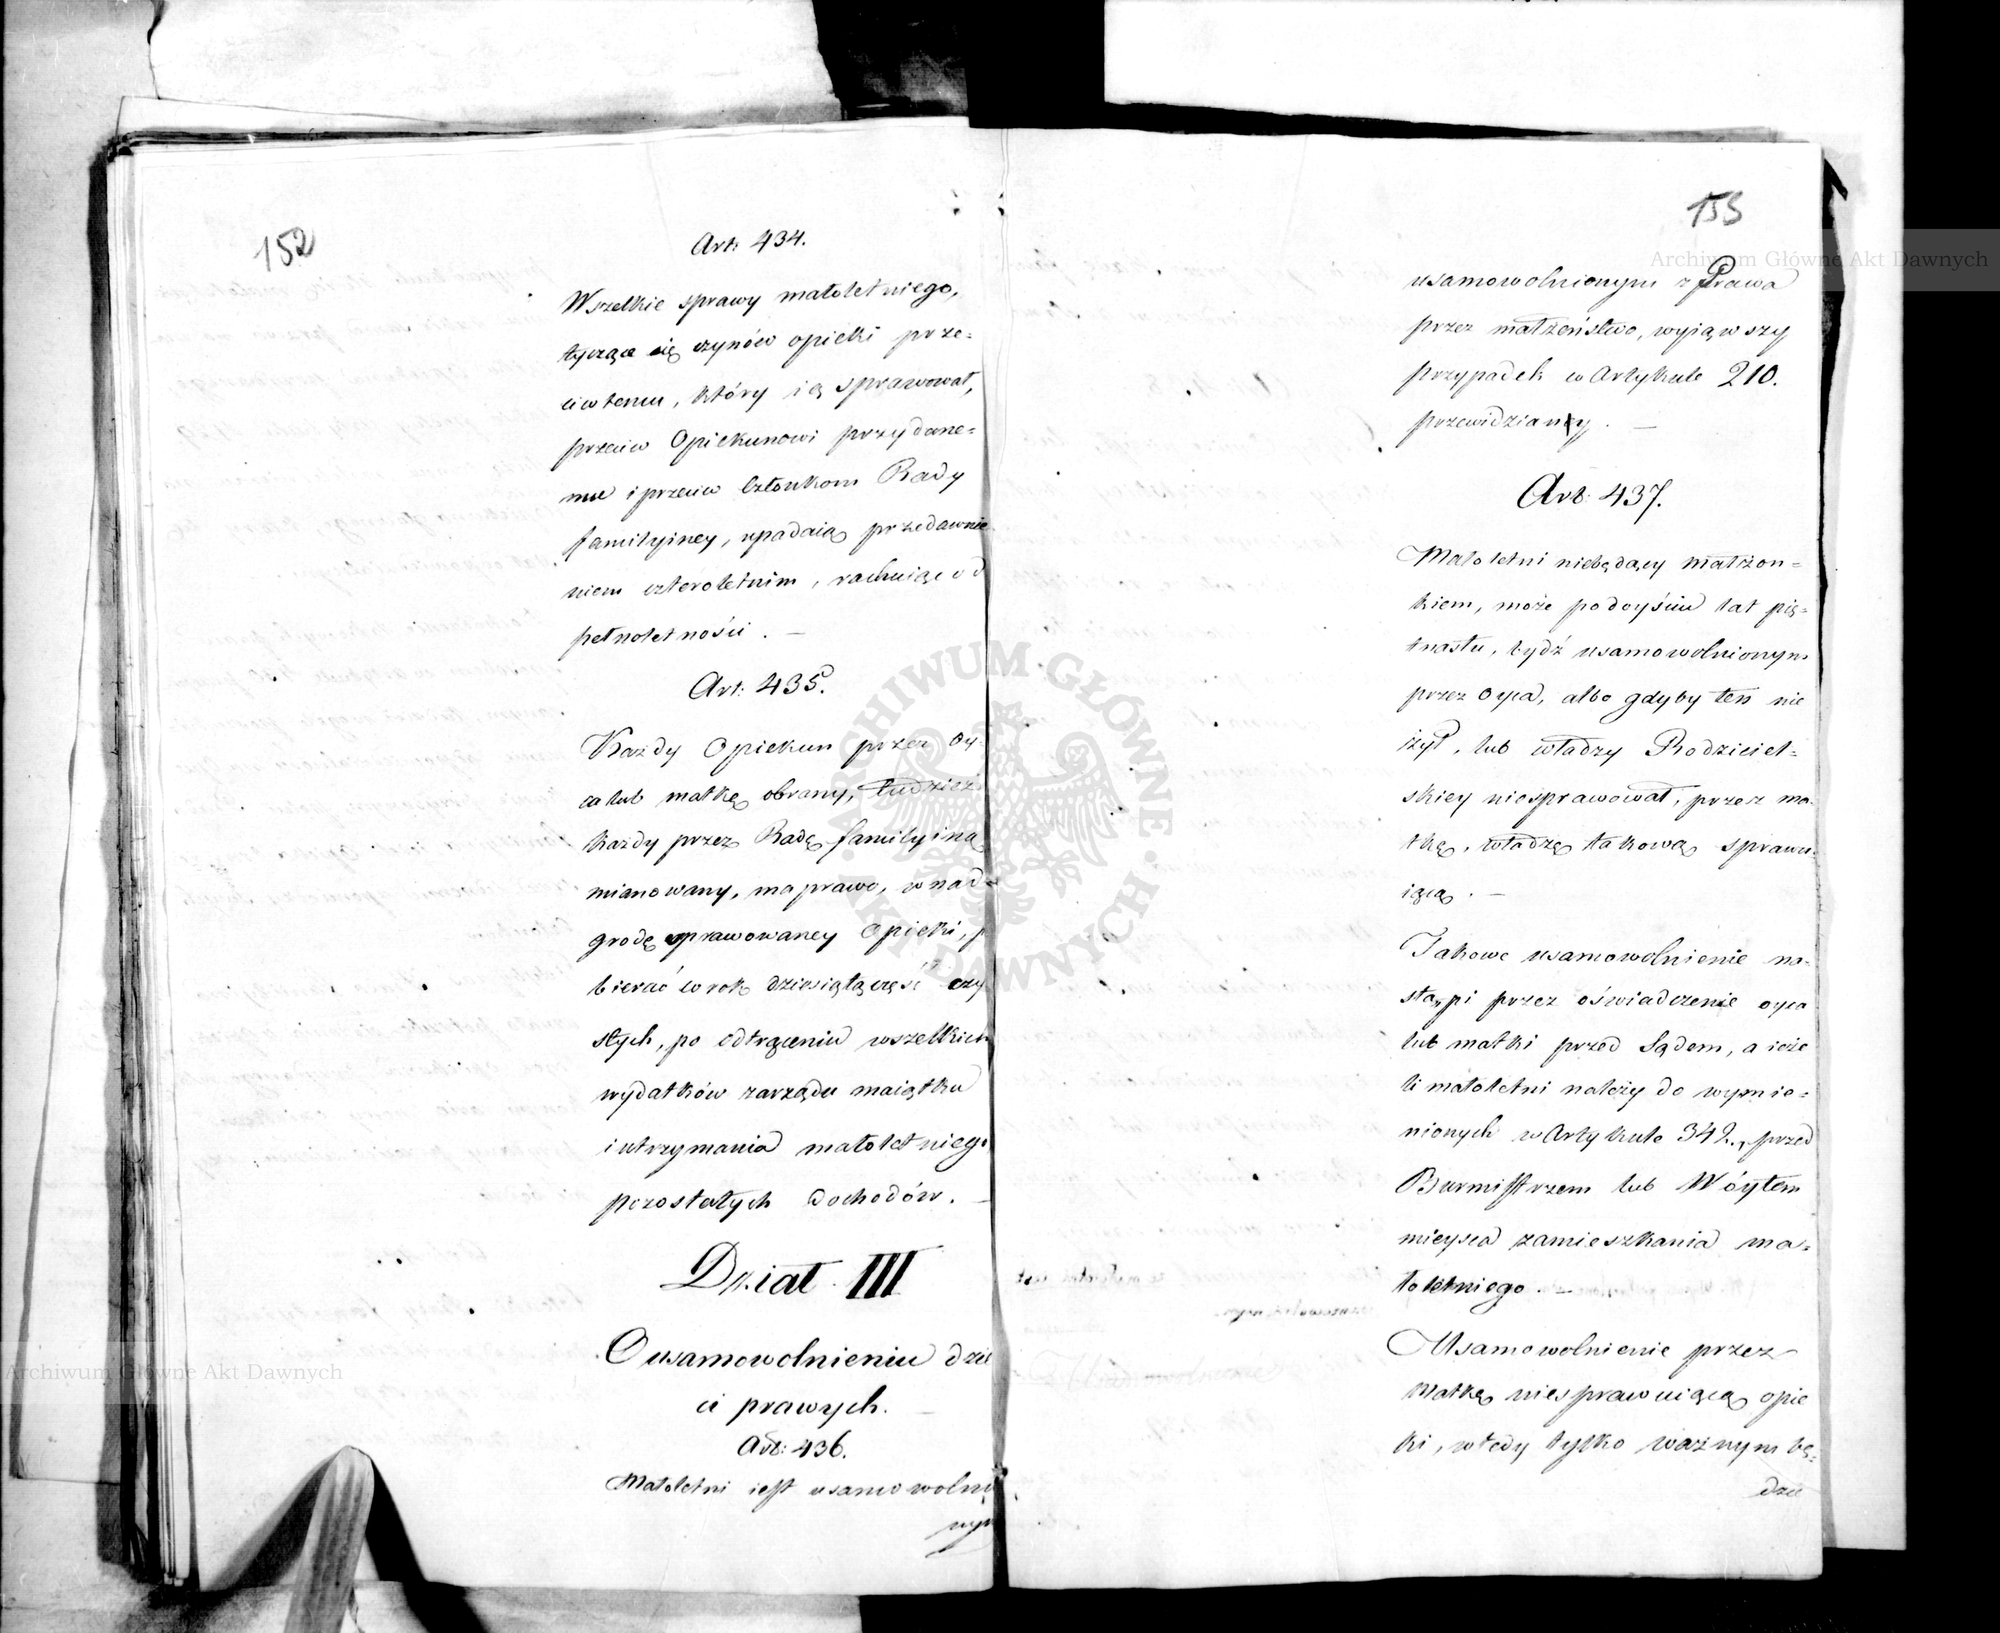 152
Art: 434.
Wszelkie sprawy małoletniego,
tyczące się czynów opieki prze-
ciw temu, który ią sprawował,
przeciw Opiekunowi przydane-
mu i przeciw Członkom Rady
familyiney, upadaią przedawnie
niem czteroletnim, rachuiąc od
pełnoletności. —
Art: 435.
Każdy Opiekun przez Oy-
ca lub matkę obrany, tudzież
każdy przez Radę familyiną
mianowany, ma prawo, w nad-
grodę sprawowaney Opieki, p
bierać w rok dziesiątą część czy
stych, po odtrąceniu wszelkich
wydatków zarządu maiątku
i utrzymania małoletniego
pozostałych dochodów. —
Dział III
O usamowolnieniu dzie
ci prawych. —
Art: 436.
Małoletni iest usamowolni
nym
153
usamowolnionym z Prawa
przez małżeństwo, wyiąwszy
przypadek w Artykule 210.
przewidziany. —
Art: 437.
Małoletni niebędący małżon-
kiem, może po doyściu lat pię-
tnastu, bydź usamowolnionym
przez Oyca, albo gdyby ten nie
żył, lub władzy Rodziciel-
skiey niesprawował, przez ma-
tkę, władzę takową sprawu-
iącą. —
Takowe usamowolnienie na-
stąpi przez oświadczenie oyca
lub matki przed Sądem, a ieże
li małoletni należy do wymie-
nionych w Artykule 342., przed
Burmistrzem lub Wóytem
mieysca zamieszkania ma-
łoletniego. —
Usamowolnienie przez
Matkę niesprawuiącą opie
ki, wtedy tylko ważnym bę-
dzie
Archiwum Główne Akt Dawnych
Archiwum Główne Akt Dawnych
ARCHIWUM GŁÓWNE · AKT DAWNYCH ·